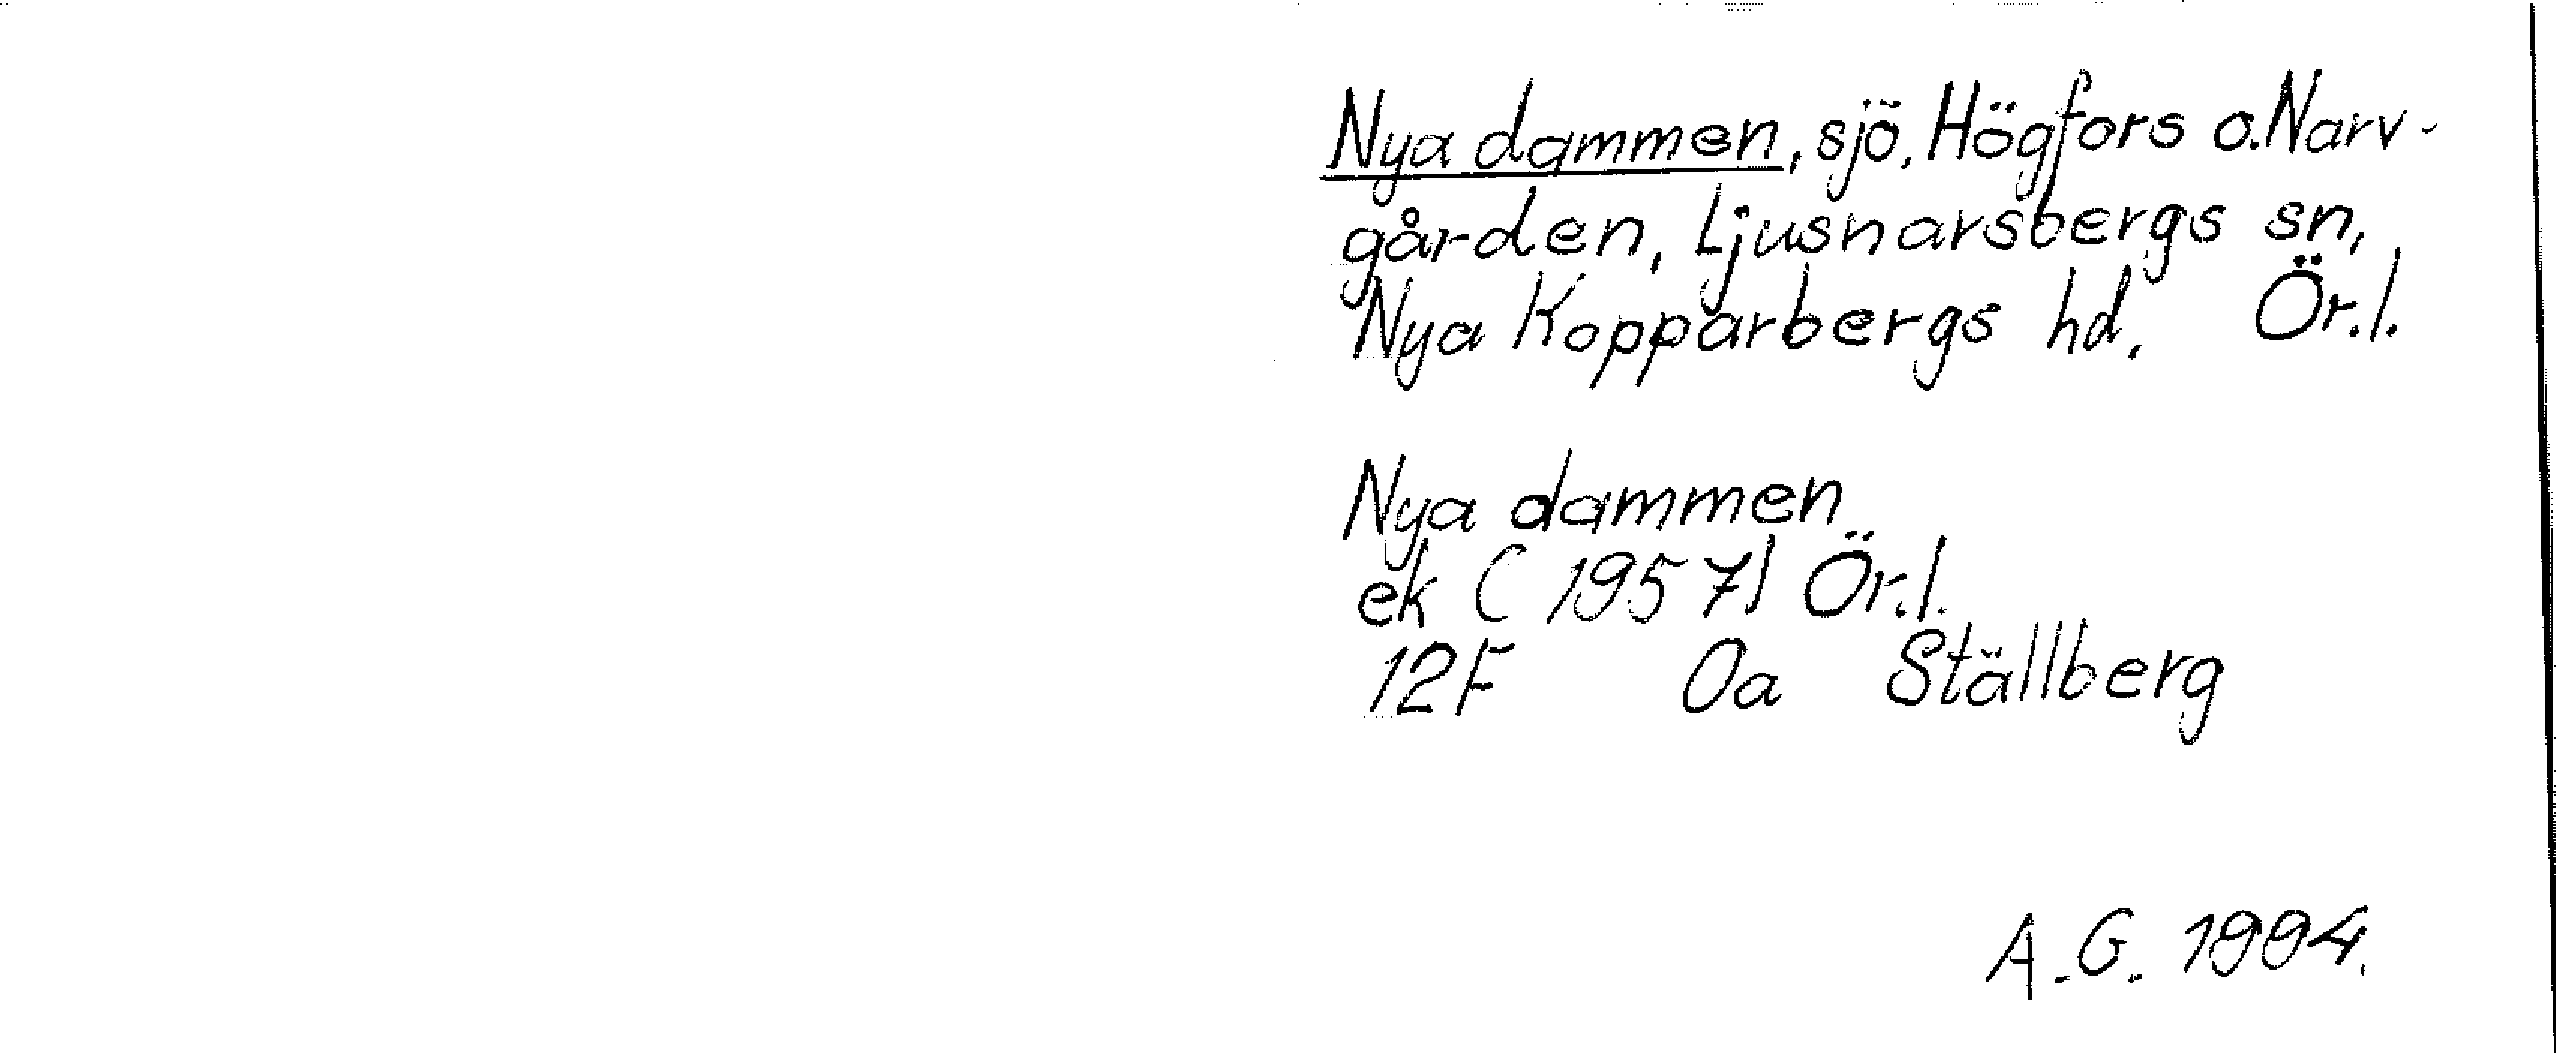 Nya dammen, sjö, Högfors o. Narv-
gården, Ljusnarsbergs sn,
Nya Kopparbergs hd, Ör.l.
Nya dammen
ek (1957) Ör.l.
12F 0a Ställberg
A.G. 1994.